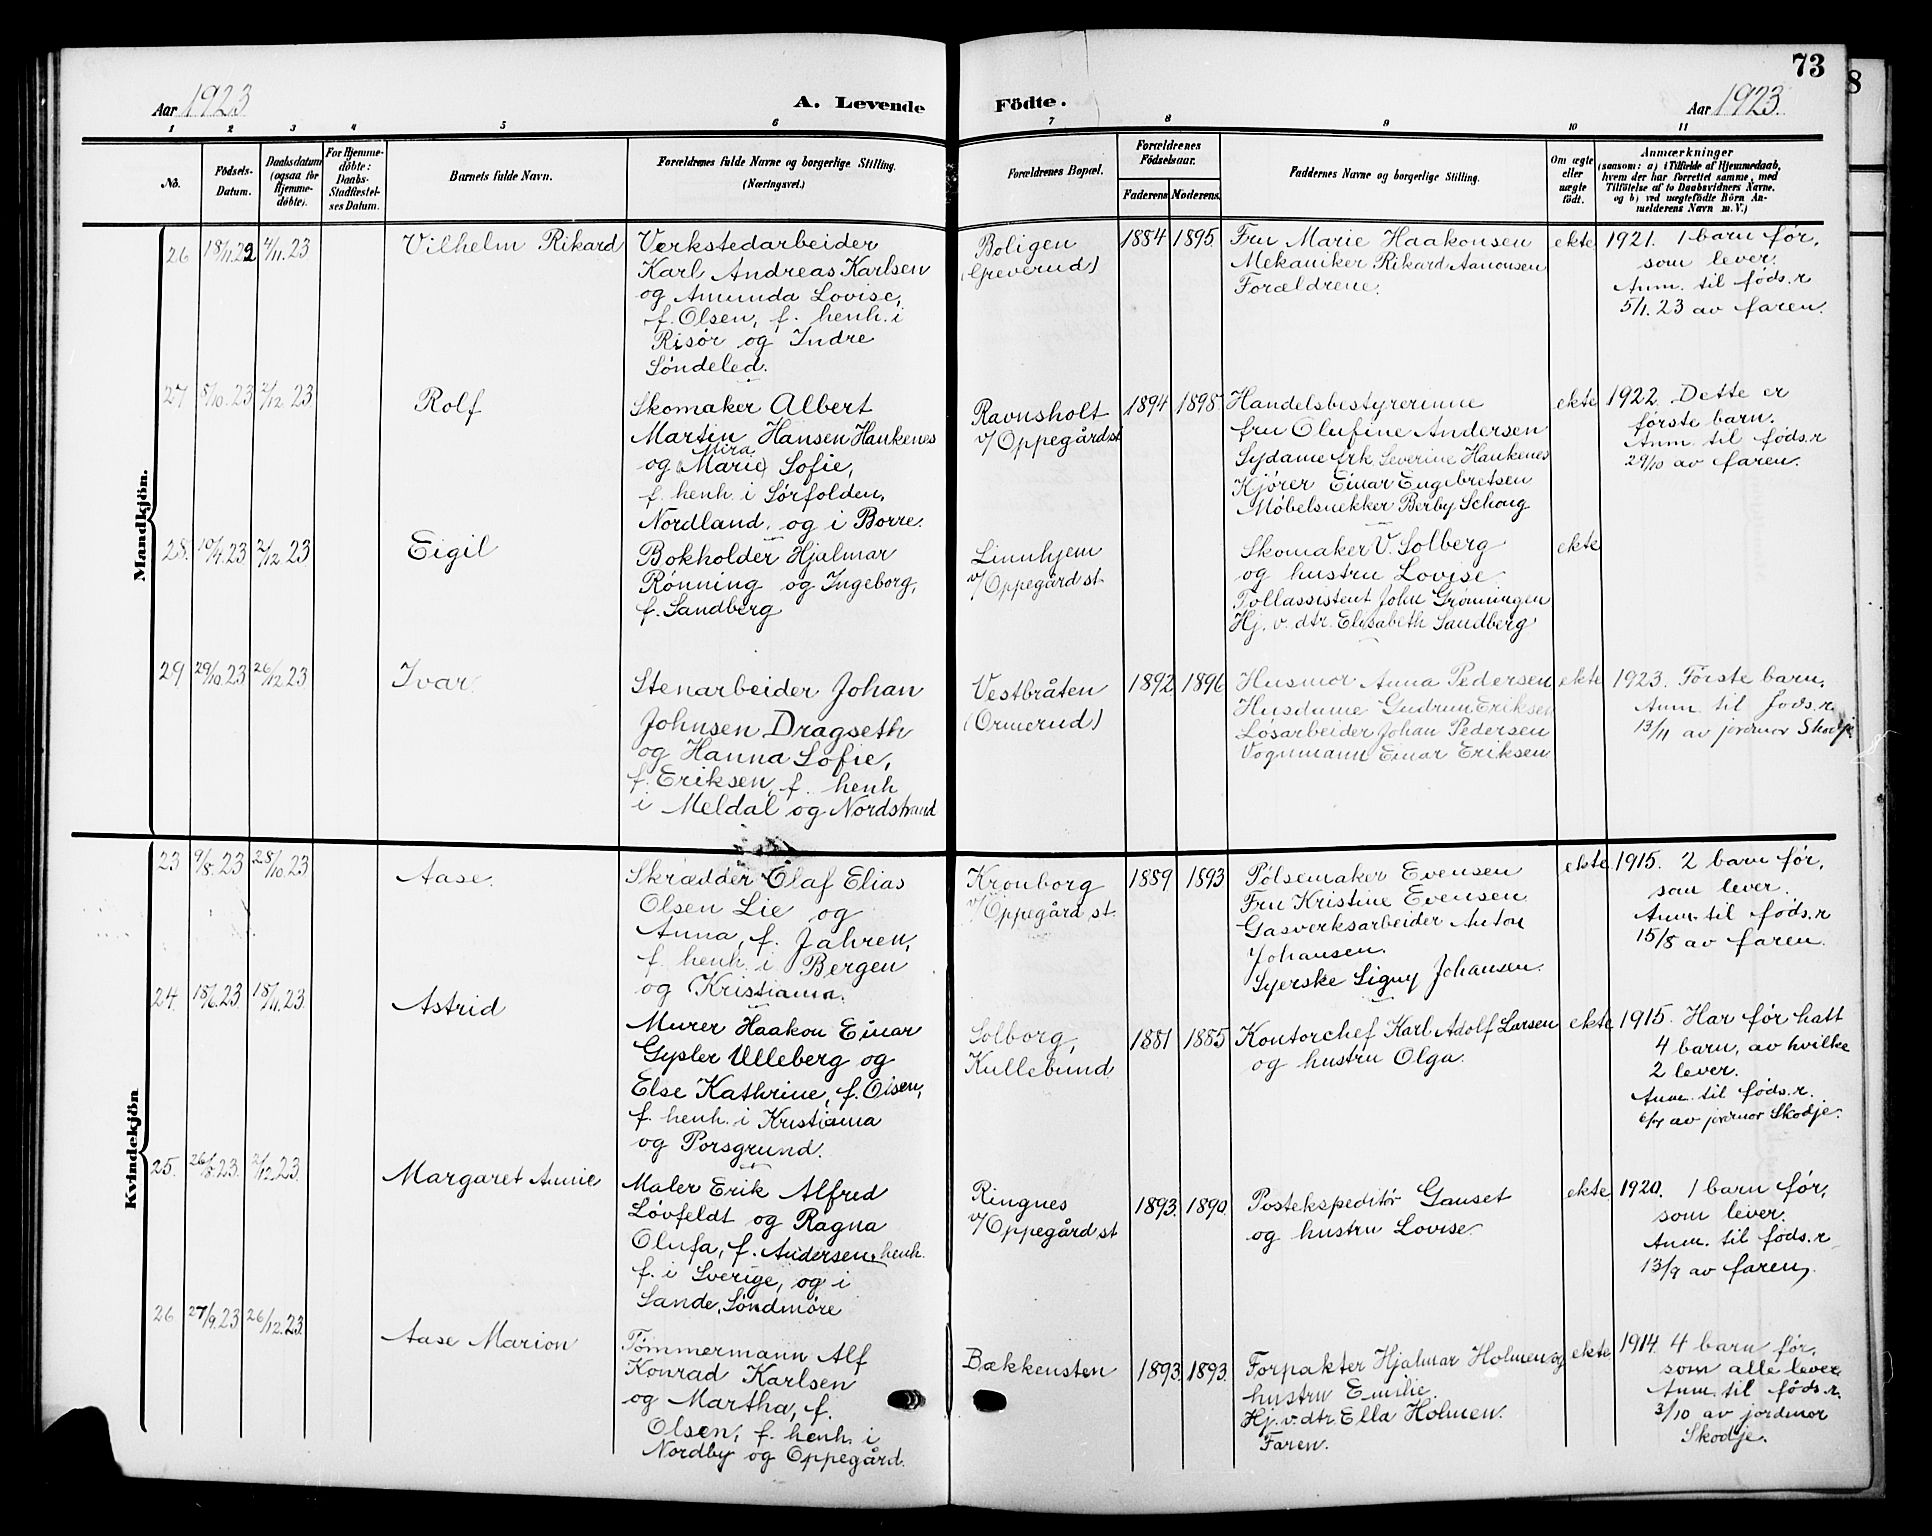 73
8
Aar 1923
A. Levende
Födte.
Aar 1923.
1 2 3 4 5 6 7 8 9 10 11
No.
Födsels-
Datum.
Daabsdatum
(ogsaa for
Hjemme-
döbte).
For Hjemme-
döbte:
Daabs-
Stadfæstel-
ses Datum.
Barnets fulde Navn.
Forældrenes fulde Navne og borgerlige Stilling.
(Næringsvei.)
Forældrenes Bopæl.
Forældrenes
Födselsaar.
Faderens Moderens.
Faddernes Navne og borgerlige Stilling.
Om ægte
eller
uægte
født.
Anmærkninger
(saasom: a) i Tilfælde af Hjemmedaab,
hvem der har forrettet samme, med
Tilføielse af to Daabsvidners Navne.
og b) ved uægtefödte Börn An-
melderens Navn m. V.)
Mandkjön.
26 18/11.22 4/11.23
Vilhelm Rikard
Verkstedarbeider
Karl Andreas Karlsen
og Amunda Lovise,
f. Olsen, f. henh. i
Risør og Indre
Søndeled.
Boligen
(Greverud)
1884 1895.
Fru Marie Haakonsen
Mekaniker Rikard Aanonsen
Forældrene.
ekte
1921. 1 barn før,
som lever.
Anm. til føds.r
5/1. 23 av faren.
27 5/10.23 2/12 23
Rolf
Skomaker Albert
Martin Hansen Haukenes
Mira
og (Marie) Sofie,
f. henh. i Sørfolden,
Nordland, og i Borre.
Ravnsholt
v/Oppegård st
1894 1898
Handelsbestyrerinne
fru Olufine Andersen
Sydame frk. Severine Haukenes
Kjører Einar Engebretsen
Møbelsnekker Berby Schoug
ekte
1922. Dette er
første barn.
Anm. til føds.r
29/10 av faren.
28. 10/4.23 2/12 23
Eigil
Bokholder Hjalmar
Rønning og Ingeborg,
f. Sandberg
Linnhjem
v/Oppegård st.
Skomaker V. Solberg
og hustru Lovise
Tollassistent John Grønningen
Hj. v. dtr. Elisabeth Sandberg
ekte
29 29/10.23 26/12 23
Ivar
Stenarbeider Johan
Johnsen Dragseth
og Hanna Sofie,
f. Eriksen, f. henh
i Meldal og Nordstrand
Vestbråten
(Ormerud)
1892 1896
Husmor Anna Pedersen
Husdame Gudrun Eriksen
Løsarbeider Johan Pedersen
Vognmann Einar Eriksen
ekte
1923. Første barn.
Anm. til føds.r.
13/11 av jordmor Skodje.
Kvindekjön
23 9/8.23 28/10.23
Aase.
Skrædder Olaf Elias
Olsen Lie og
Anna, f. Jahren,
f. henh. i Bergen
og Kristiania.
Kronborg
v/Oppegård st.
1889 1893
Pølsemaker Evensen
Fru Kristine Evensen
Gasverksarbeider Anton
Johansen.
Syerske Signy Johansen.
ekte
1915. 2 barn før,
som lever.
Anm. til føds.r
15/8 av faren.
24. 18/6.23 18/11.23
Astrid
Murer Haakon Einar
Gysler Ulleberg og
Else Kathrine, f. Olsen,
f. henh. i Kristiania
og Porsgrund.
Solborg,
Kullebund
1881 1885
Kontorchef Karl Adolf Larsen
og hustru Olga.
ekte
1915. Har før hatt
4 barn, av hvilke
2 lever.
Anm. til føds.r.
6/7 av jordmor Skodje.
25. 26/8.23. 2/12.23
Margaret Annie
Maler Erik Alfred
Løvfeldt og Ragna
Olufa, f. Andersen, henh.
f. i Sverige, og i
Sande, Søndmøre
Ringnes
v/Oppegård st
1893. 1890.
Postekspeditør Ganset
og hustru Lovise.
ekte
1920. 1 barn før,
som lever.
Anm. til føds.r
13/9 av faren.
26 27/9.23 26/12.23.
Aase Marion
Tømmermann Alf
Konrad Karlsen
og Martha, f.
Olsen, f. henh. i
Nordby og Oppegård.
Bækkensten
1893. 1893.
Forpakter Hjalmar Holmen og
hustru Emilie.
Hj. v. dtr. Ella Holmen.
Faren.
ekte
1914. 4 barn før,
som alle lever.
Anm. til føds.r.
3/10 av jordmor
Skodje.